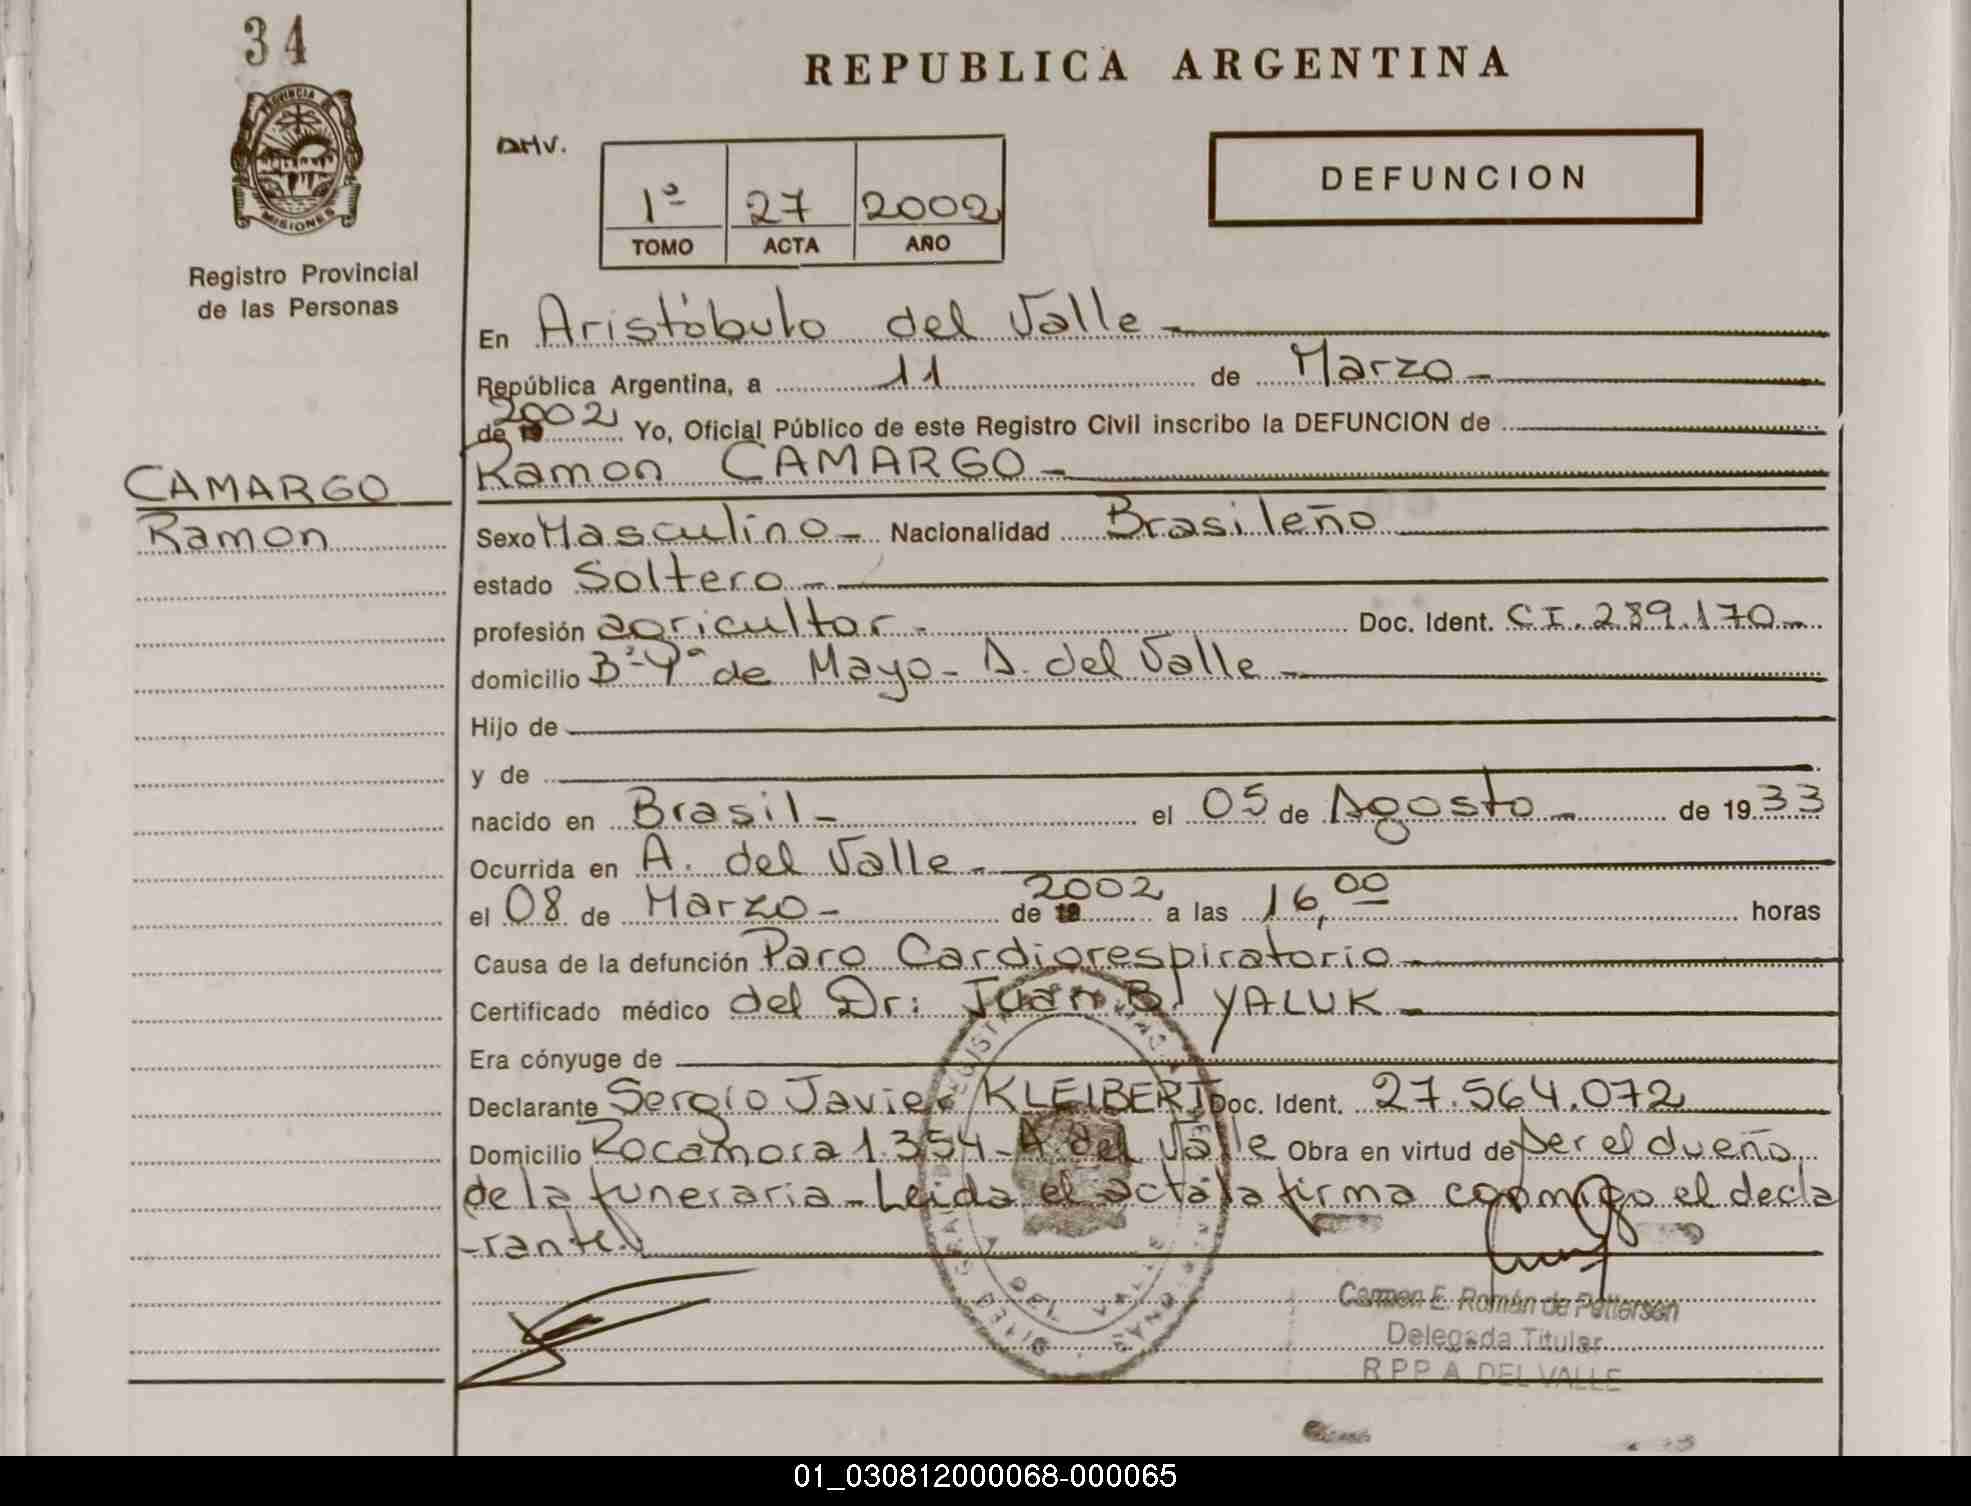 34
PROVINCIA DE
MISIONES
Registro Provincial
de las Personas
CAMARGO
Ramon
REPUBLICA ARGENTINA
DMV.
1º 27 2002
TOMO ACTA AÑO
DEFUNCION
En Aristóbulo del Valle
República Argentina, a 11 de Marzo
de 19 2002 Yo, Oficial Público de este Registro Civil inscribo la DEFUNCION de
Ramon CAMARGO
Sexo Masculino Nacionalidad Brasileño
estado Soltero
profesión agricultor Doc. Ident. CI. 289.170
domicilio Bº de Mayo - A. del Valle
Hijo de
y de
nacido en Brasil el 05 de Agosto de 1933
Ocurrida en A. del Valle
el 08 de Marzo de 2002 a las 16,00 horas
Causa de la defunción Paro Cardiorespiratorio
Certificado médico del Dr: Juan B. YALUK
Era cónyuge de
Declarante Sergio Javier KLEIBERT Doc. Ident. 27.564.072
Domicilio Rocamora 1.354 - A. del Valle Obra en virtud de ser el dueño
de la funeraria - Leida el acta la firma conmigo el decla
-rante.
Carmen E. Román de Pettersen
Delegada Titular
R P P A DEL VALLE
01_030812000068-000065